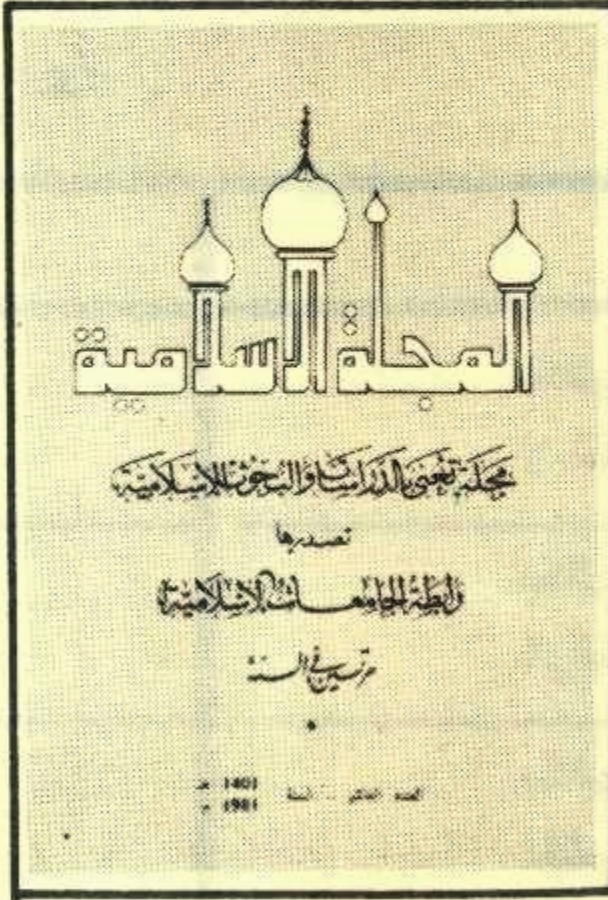 المجلة الاسلامية
مجلة تعنى بالدراسات والبحوث الإسلامية
تصدرها
رابطة الجامعات الإسلامية
مرتين في السنة
العدد العاشر - السنة 1401 هـ
1981 م